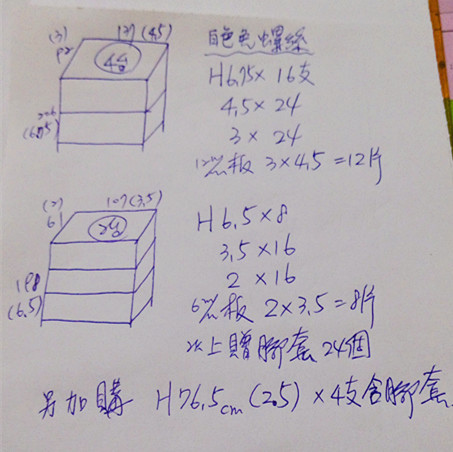 (3) 92 137 (4.5)
4台
206 (6.75)
白色免螺絲
H6.75×16支
4.5×24
3×24
板 3×4.5=12片
(2) 61 107(3.5)
2台
198 (6.5)
H6.5×8
3.5×16
2×16
板 2×3.5=8片
以上贈腳套24個
另加購 H76.5cm(2.5)×4支含腳套